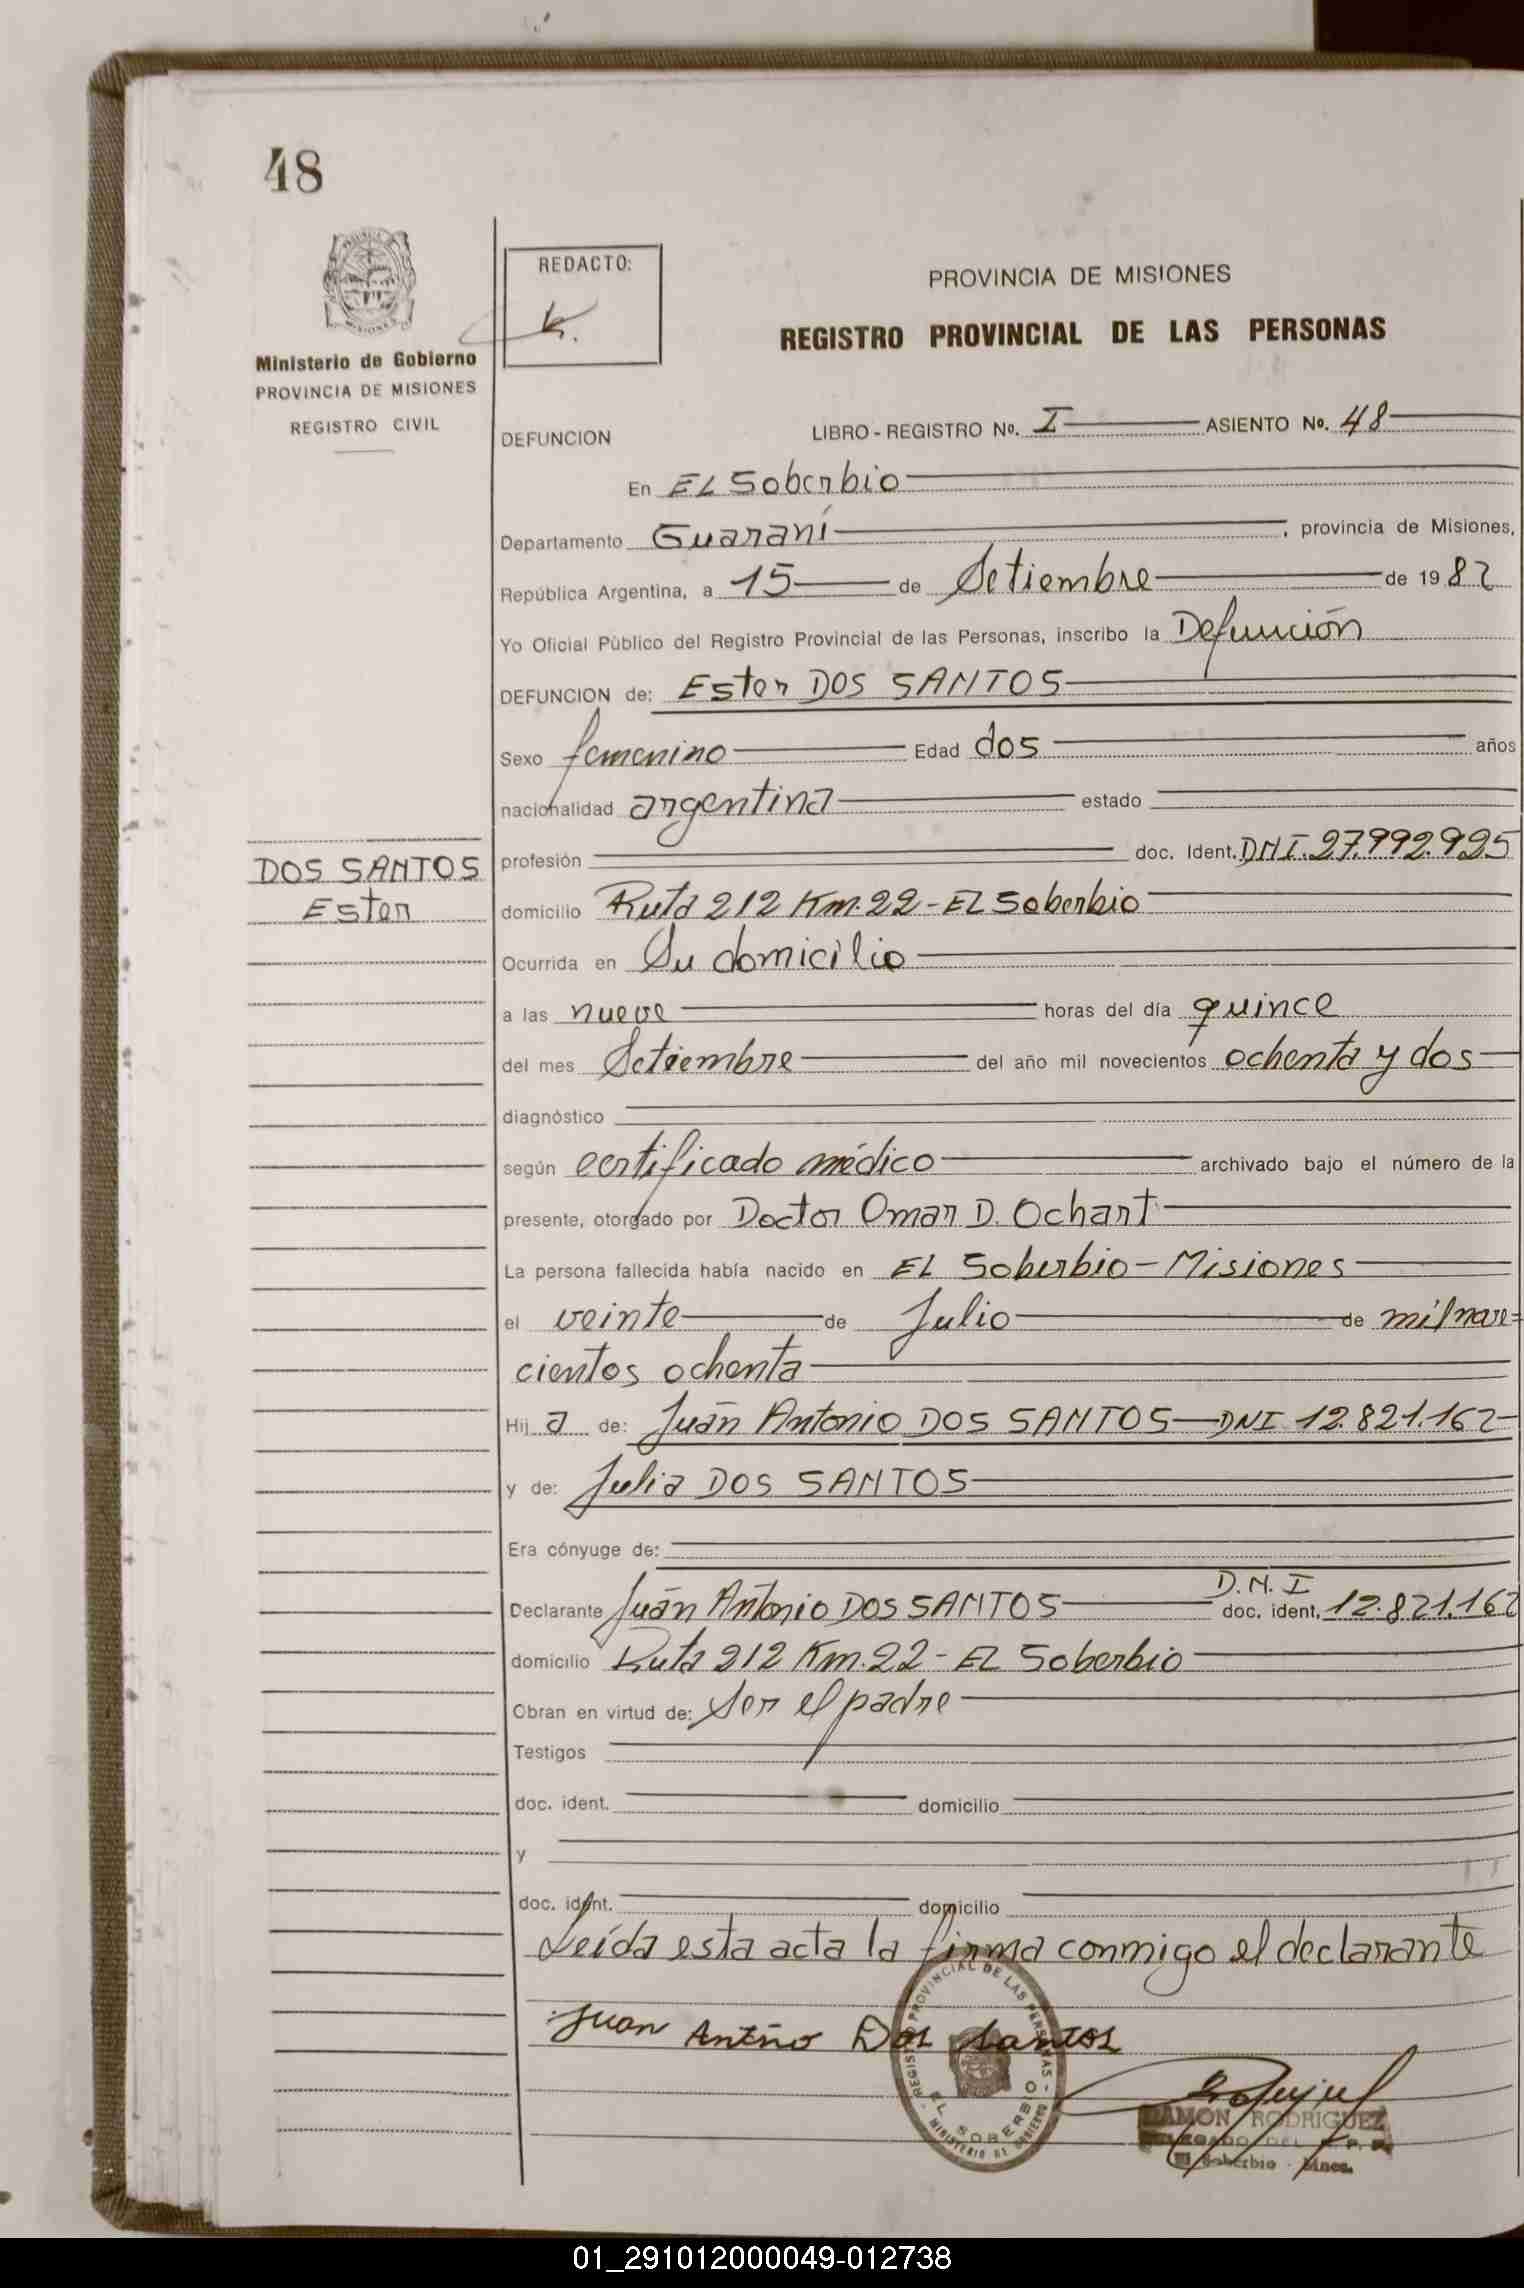 48
PROVINCIA DE
MISIONES
Ministerio de Gobierno
PROVINCIA DE MISIONES
REGISTRO CIVIL
REDACTO:
PROVINCIA DE MISIONES
REGISTRO PROVINCIAL DE LAS PERSONAS
DEFUNCION LIBRO - REGISTRO Nº. I ASIENTO Nº. 48
En EL Soberbio
Departamento Guaraní, provincia de Misiones,
República Argentina, a 15 de Setiembre de 1982
Yo Oficial Público del Registro Provincial de las Personas, inscribo la Defunción
DEFUNCION de: Ester DOS SANTOS
Sexo femenino Edad dos años
nacionalidad argentina estado
profesión doc. Ident. DNI. 27.992.925
DOS SANTOS
Ester
domicilio Ruta 212 Km. 22 - EL Soberbio
Ocurrida en Su domicilio
a las nueve horas del día quince
del mes Setiembre del año mil novecientos ochenta y dos
diagnóstico
según certificado médico archivado bajo el número de la
presente, otorgado por Doctor Omar D. Ochart
La persona fallecida había nacido en EL Soberbio - Misiones
el veinte de Julio de mil nove=
cientos ochenta
Hij a de: Juan Antonio DOS SANTOS - DNI 12.821.162
y de: Julia DOS SANTOS
Era cónyuge de:
Declarante Juan Antonio DOS SANTOS D.N.I doc. ident. 12.821.162
domicilio Ruta 212 Km. 22 - EL Soberbio
Obran en virtud de: Ser el padre
Testigos
doc. ident. domicilio
y
doc. ident. domicilio
Leída esta acta la firma conmigo el declarante
Juan Antño Dos santos
REGISTRO PROVINCIAL DE LAS PERSONAS
EL SOBERBIO
MINISTERIO DE GOBIERNO
RAMON RODRIGUEZ
DELEGADO DEL R. P. P.
El Soberbio - Mnes.
01_291012000049-012738